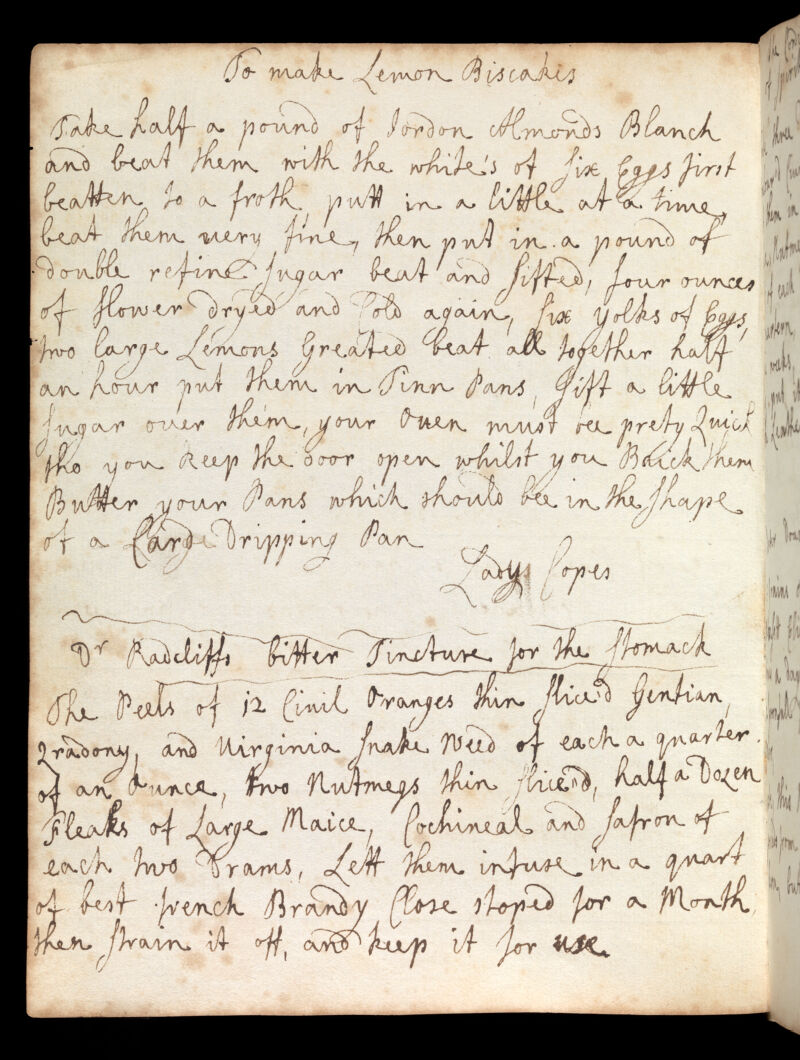 To make Lemon Biscakes
Take half a pound of Jordon Almonds Blanch
and beat them with the white's of six Eggs first
beatten to a froth, putt in a little at a time,
beat them very fine, then put in a pound of
double refine Sugar beat and sifted, four ounces
of flower dryed and Cold again, six yolks of Eggs,
two large Lemons Greated beat all together half
an hour put them in Tinn Pans, Sift a little
Sugar over them, your Oven must bee prety Quick
tho you keep the door open whilst you Baick them
Butter your Pans which should bee in the shape
of a Card Dripping Pan
Lady Copes
Dr Radcliffs bitter Tincture for the Stomack
The Peels of 12 Civil Oranges thin slice'd Gentian,
Zradony, and Virginia Snake Weed of each a quarter
of an Ounce, two Nutmegs thin slice'd, half a Dozen
Fleaks of Large Maice, Cochineal and Safron of
each two Drams, Lett them infuse in a quart
of best french Brandy Close stoped for a Month,
then strain it off, and keep it for use.